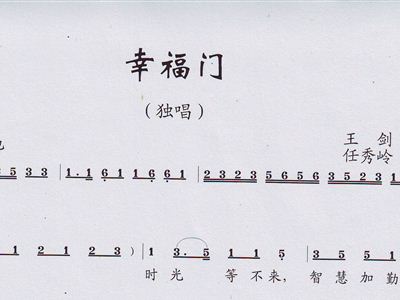 幸福门
（独唱）
王 剑
任秀岭
5 3 3 | 1. 1 6 1 1. 6 6 1 | 2 3 2 3 5 6 5 6 3 5 3 5 2 3 2 3
2 1 2 3 ) | 1 3. 5 1 1 5 | 3 5 5 1
时 光 等 不 来， 智 慧 加 勤